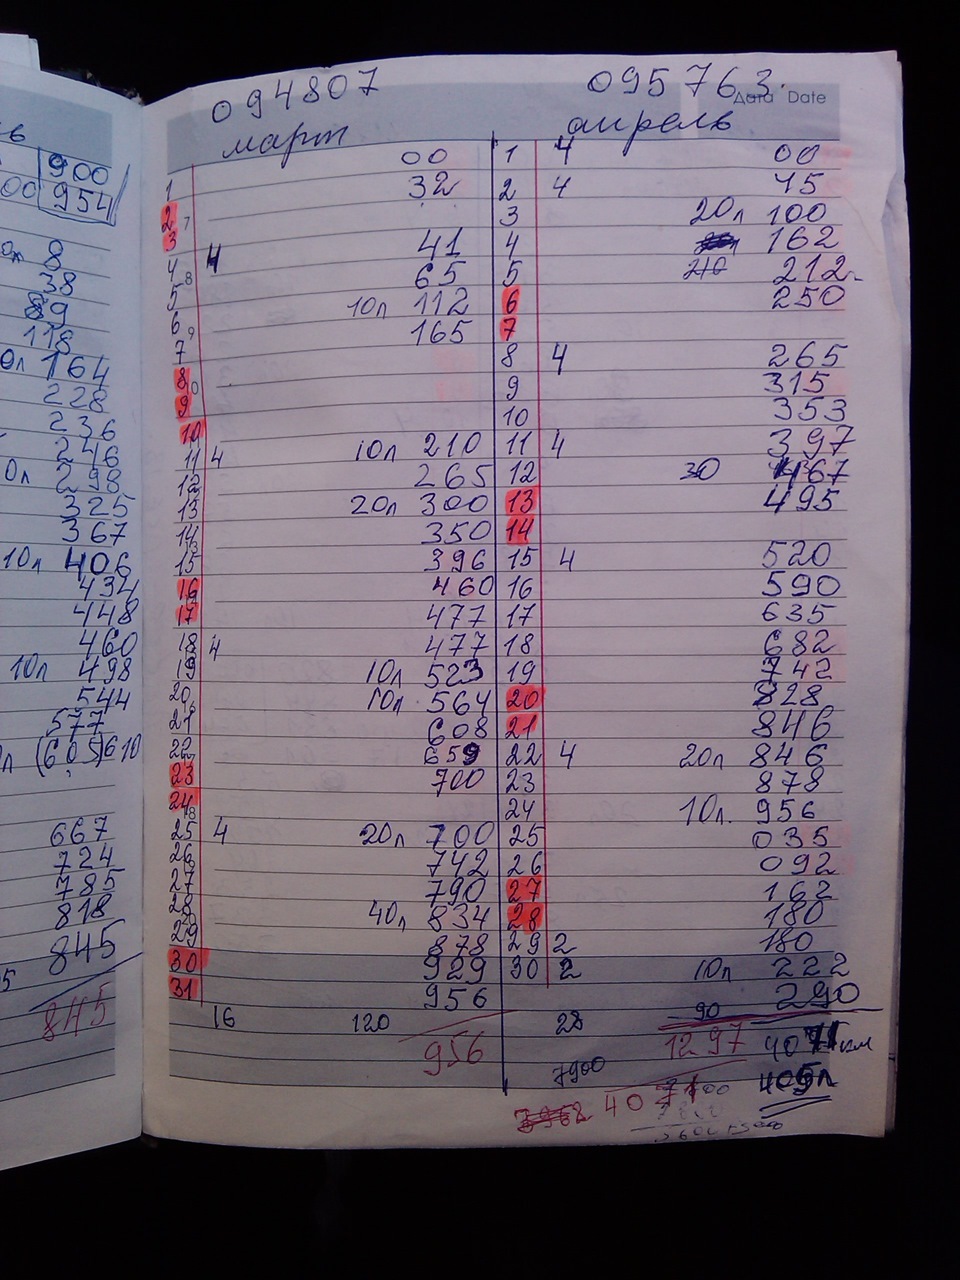 900
954
8
38
89
118
164
228
236
246
298
325
367
10л 406
434
448
460
10л 498
544
577
(605) 610
667
724
785
818
845
845
094807
март
00
1 32
2
3
4 4 41
5 65
6 10л 112
7 165
8
9
10
11 4 10л 210
12 265
13 20л 300
14 350
15 396
16 460
17 477
18 4 477
19 10л 523
20 10л 564
21 608
22 659
23 700
24
25 4 20л 700
26 742
27 790
28 40л 834
29 878
30 929
31 956
16 120
956
095763
Дата Date
апрель
1 4 00
2 4 45
3 20л 100
4 162
5 210 212
6 250
7
8 4 265
9 315
10 353
11 4 397
12 30 467
13 495
14
15 4 520
16 590
17 635
18 682
19 742
20 828
21 846
22 4 20л 846
23 878
24 10л. 956
25 035
26 092
27 162
28 180
29 2 180
30 2 10л 222
290
28 90
1297 4071 км
7900
405л
3962 4071